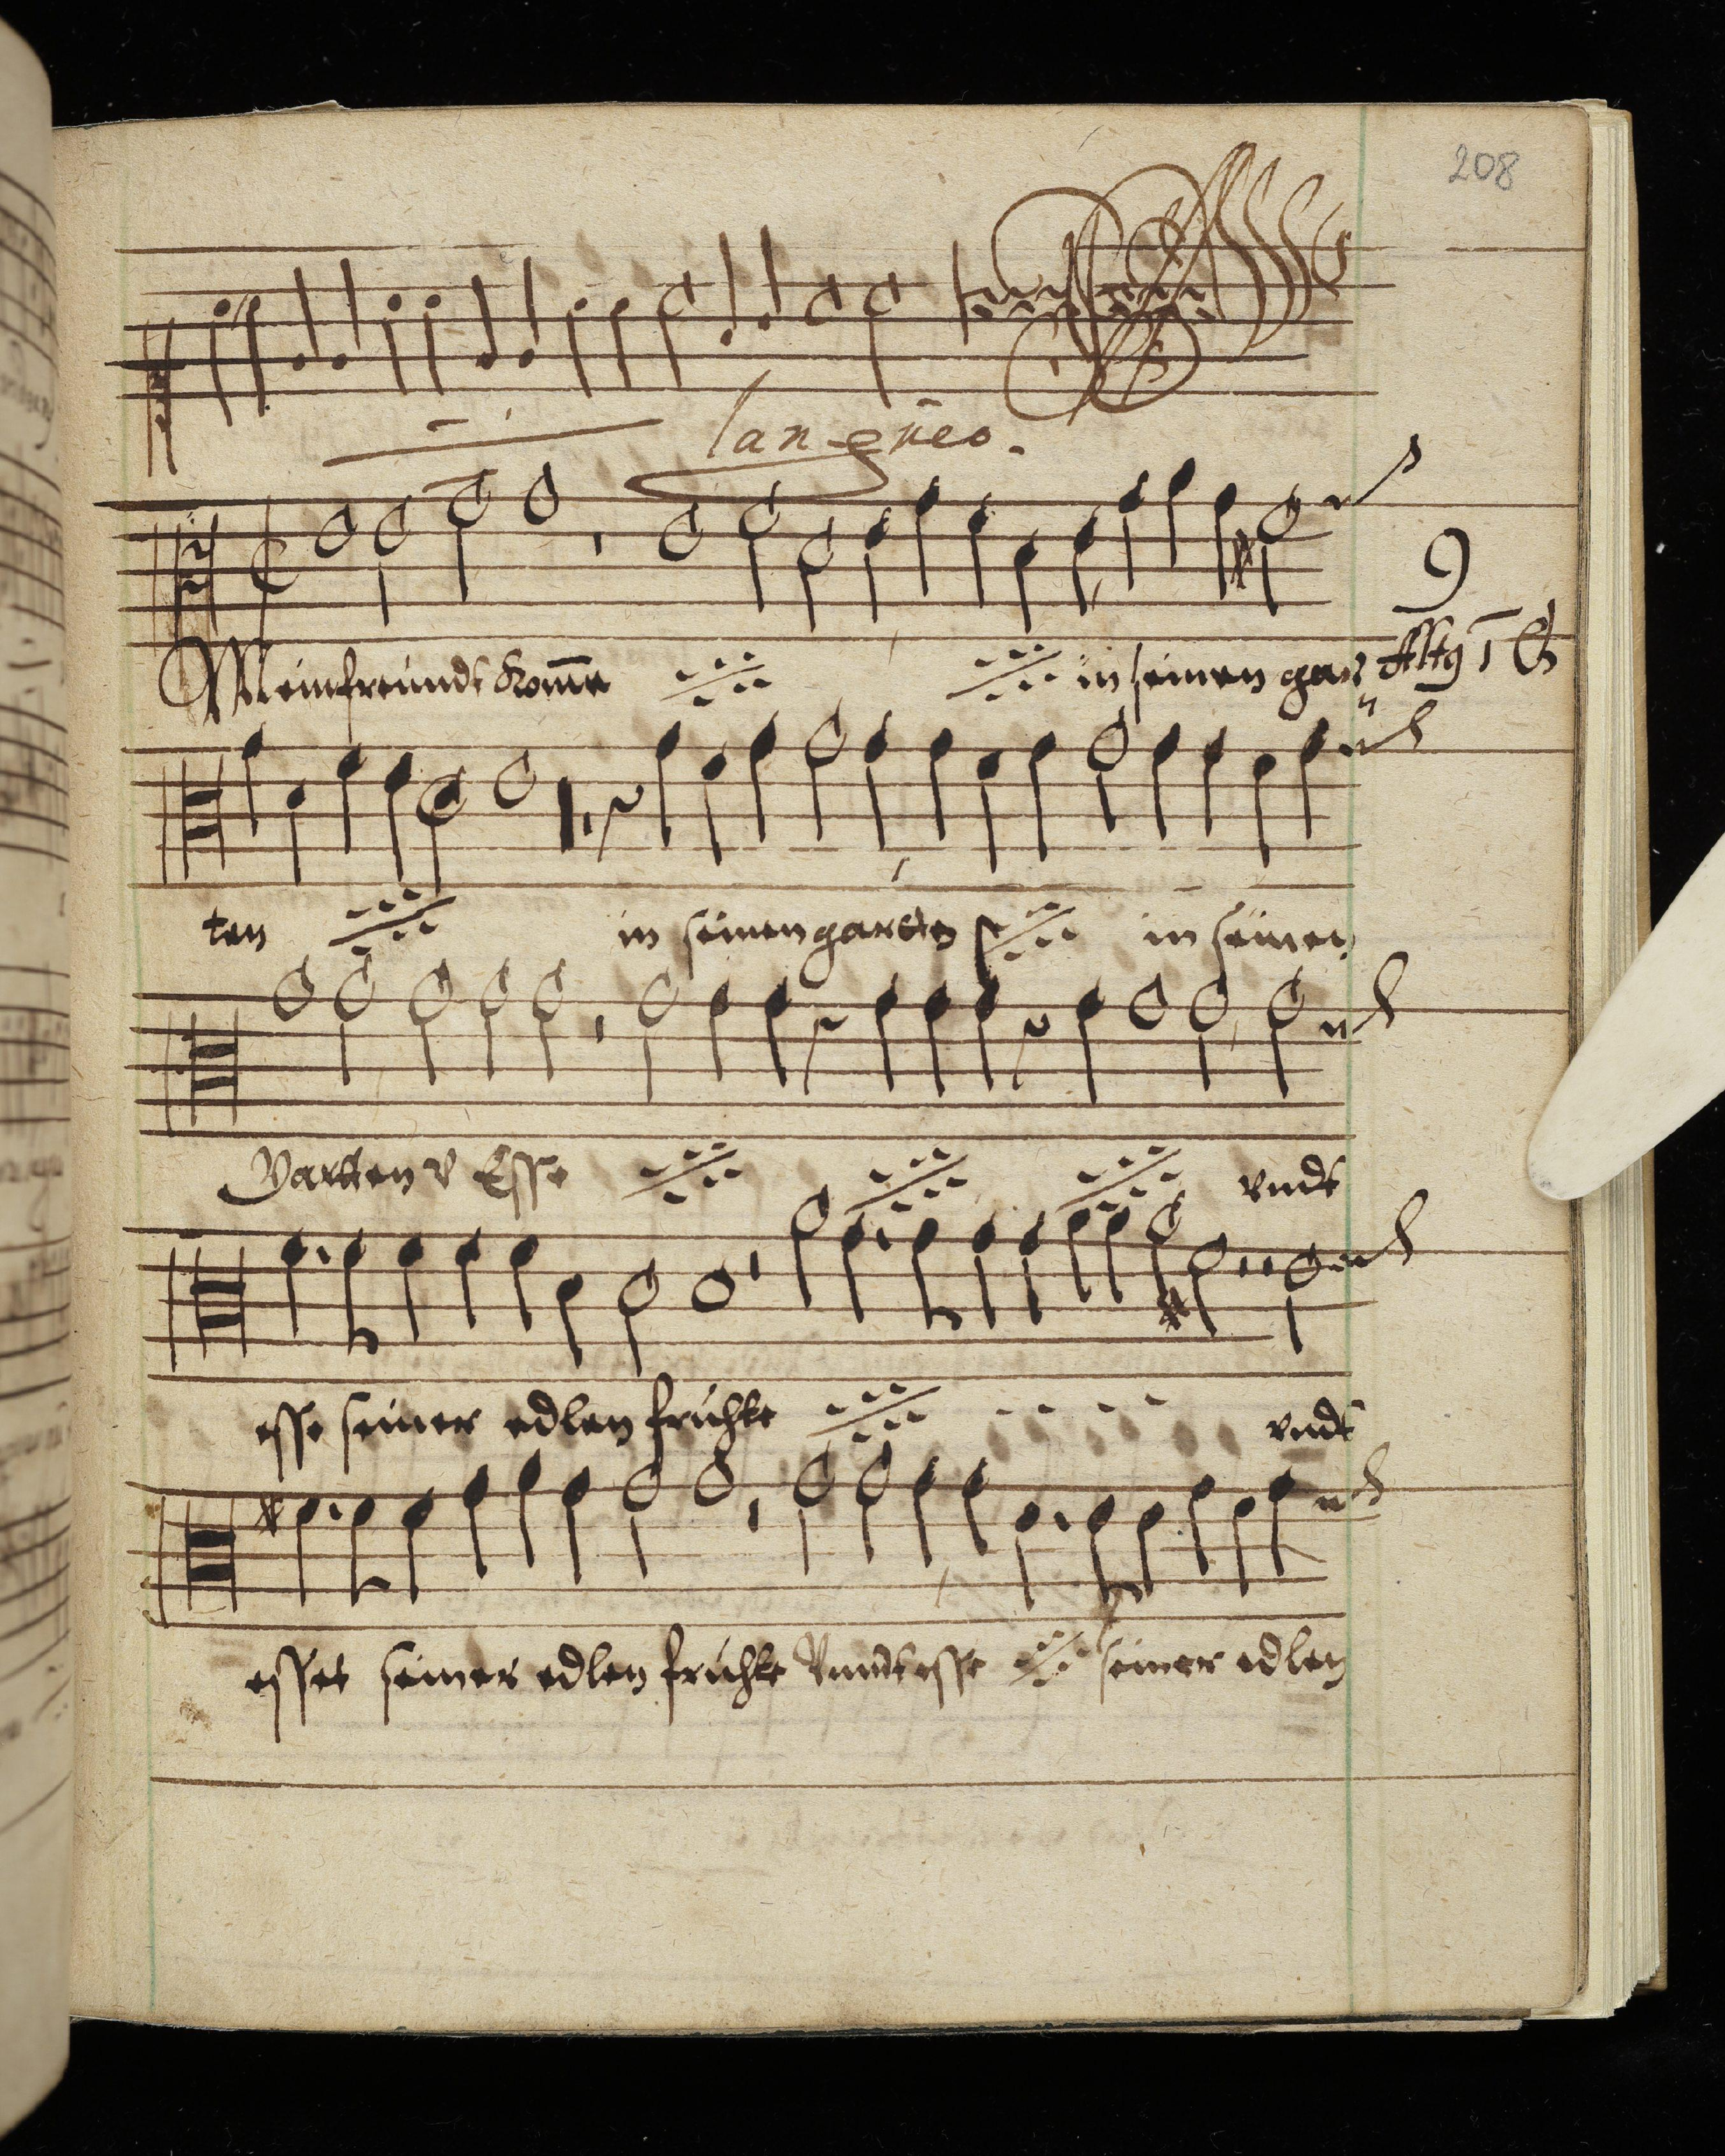 208
langueo.
9
Mein freundt Kom̅e in seinen gar
Alt9 1 Ch
ten in seinen garten in seinen
Gartten v Esse vndt
esse seiner edlen fruchte vndt
esset seiner edlen fruchte Vnndt esse seiner edlen